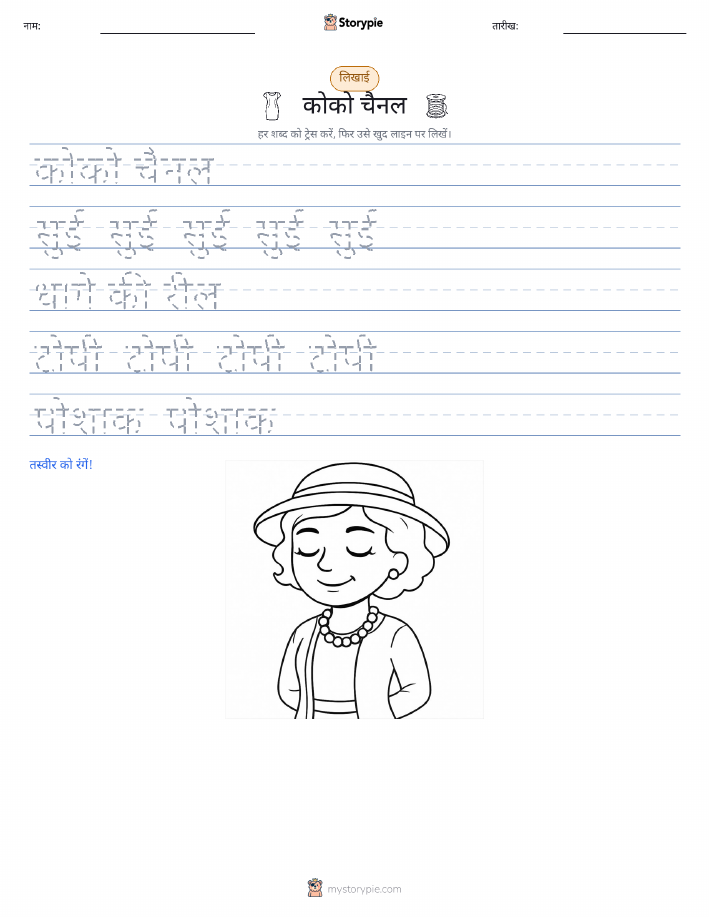 नाम: Storypie तारीख:
लिखाई
कोको चैनल
हर शब्द को ट्रेस करें, फिर उसे खुद लाइन पर लिखें।
कोको चैनल
सुई सुई सुई सुई सुई
धागे की रील
टोपी टोपी टोपी टोपी
पोशाक पोशाक
तस्वीर को रंगें!
mystorypie.com